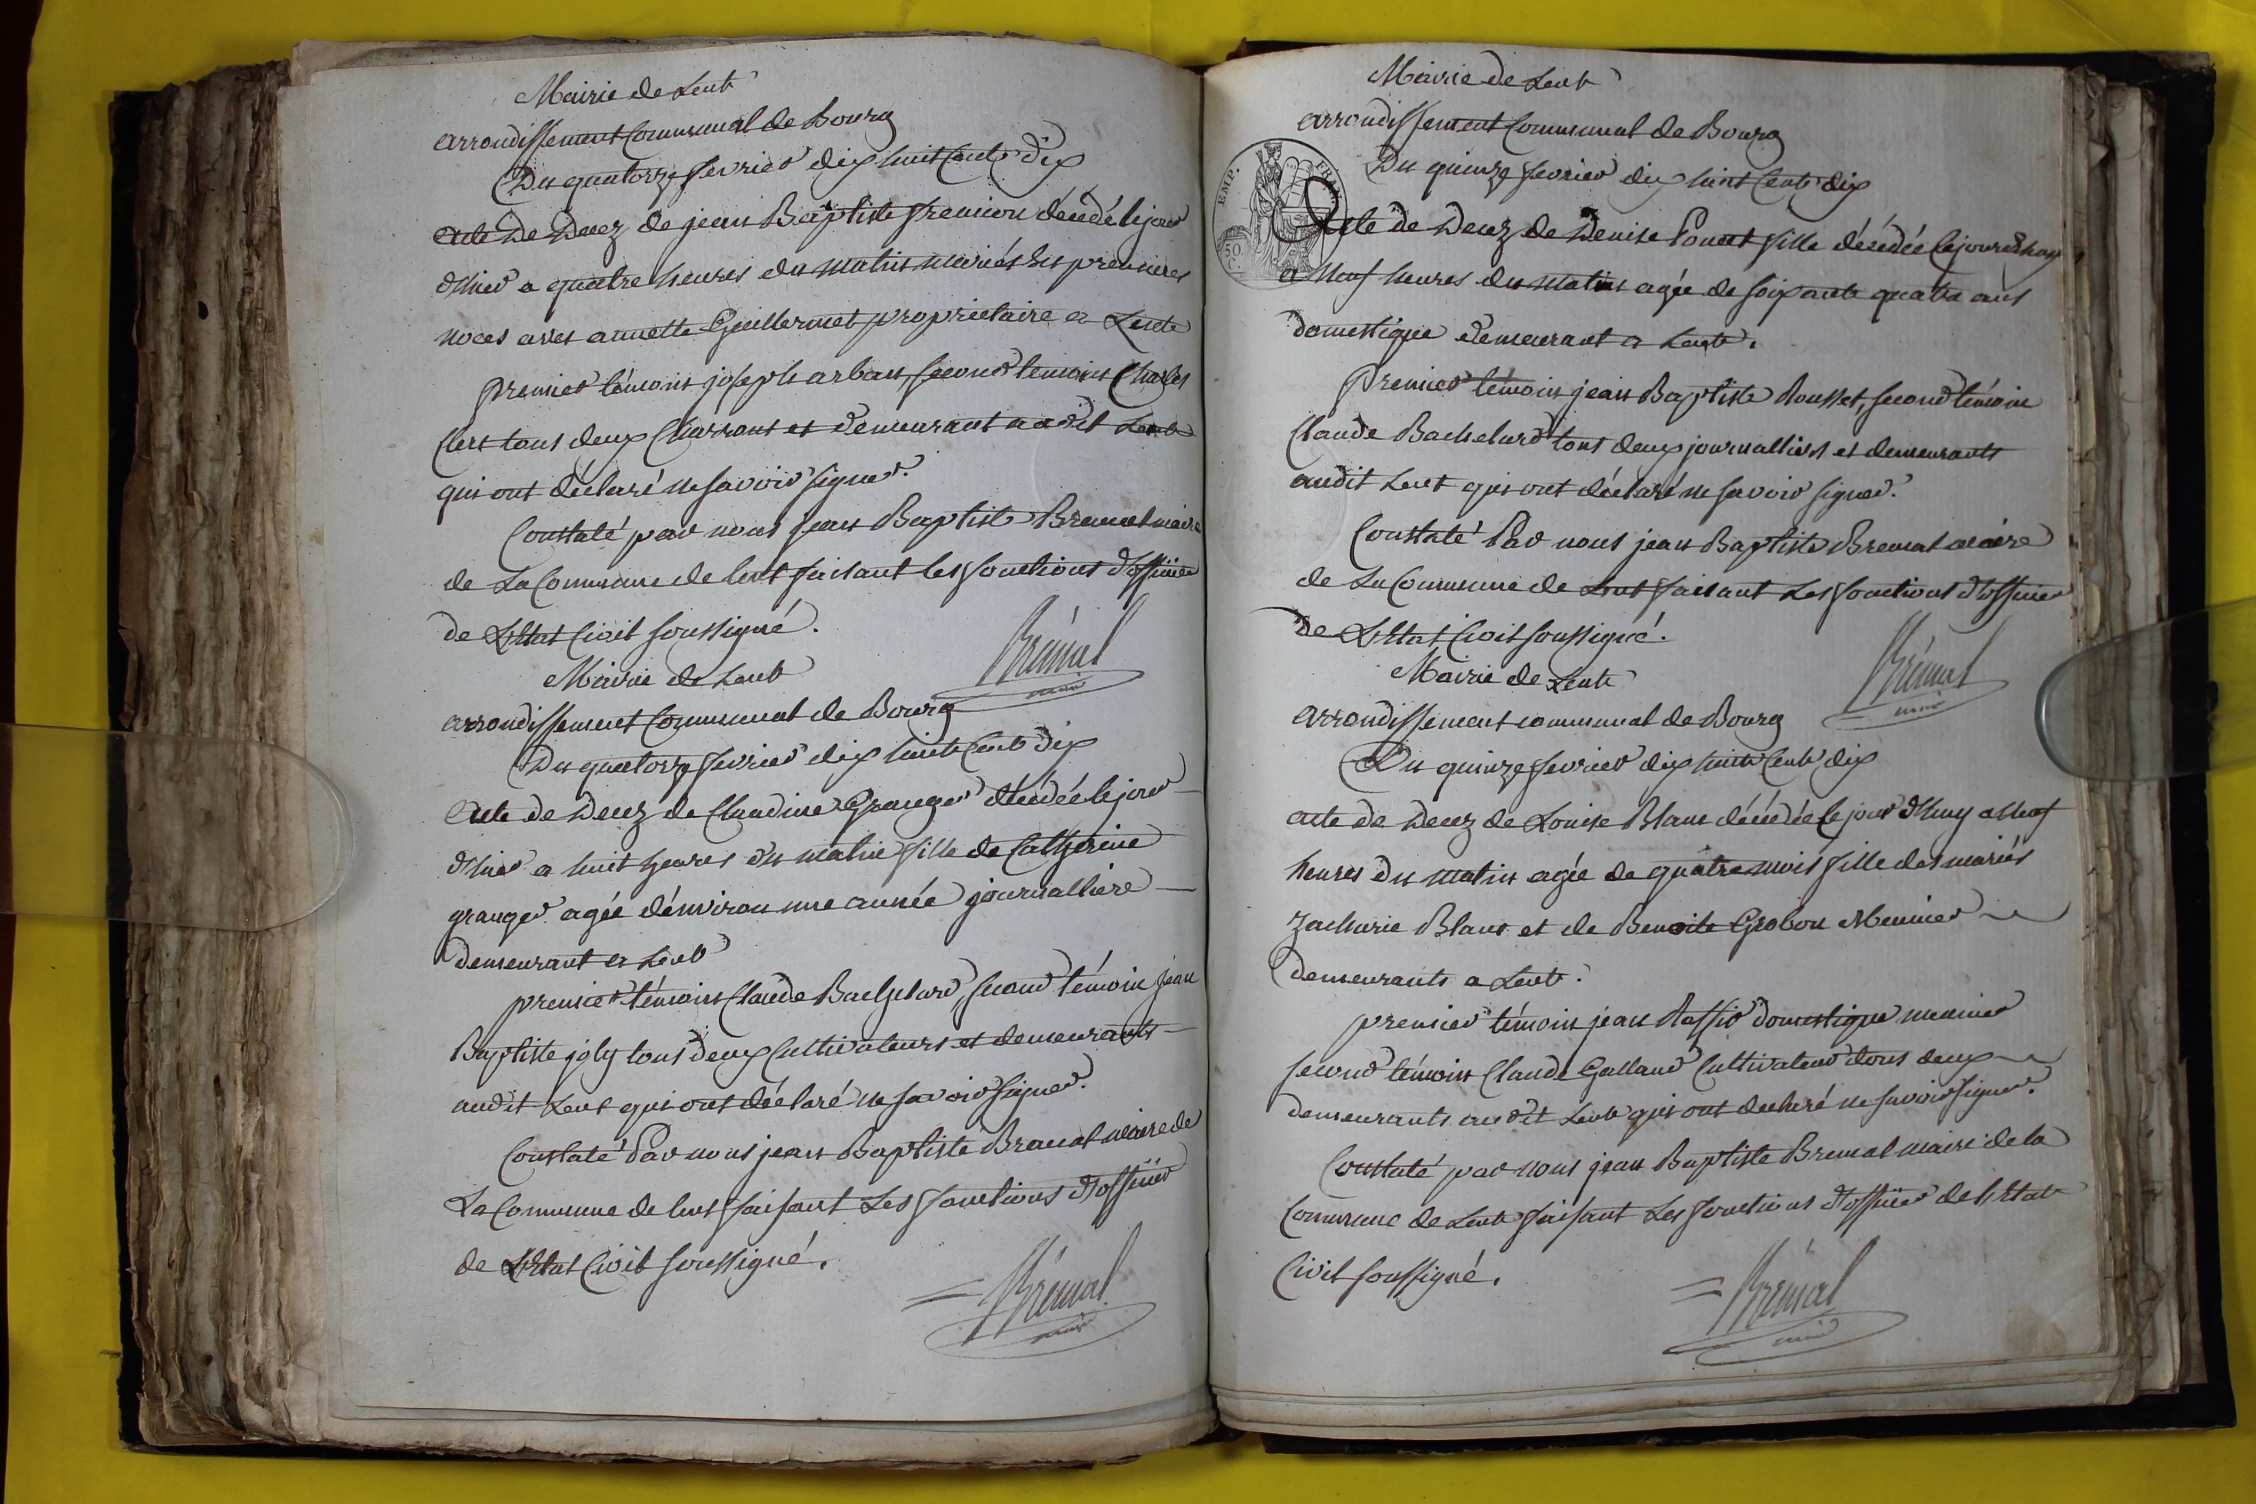 Mairie de Lent
arrondissement Communal de Bourg
Du quatorze fevrier dix huit Cents dix
acte De Decez de jean Baptiste fremion décedé lejour
d'hier a quatre heures du matin mariés Ses premieres
noces avec annette Guillermet proprietaire a Lent
premier témoin joseph arban, second temoin Charles
Clert tous deux Charrons et demeurant audit Lent
qui ont déclaré ne savoir signer.
Constaté par nous jean Baptiste Bremal maire
de La Commune de lent faisant les fonctions d'officier
de L'Etat Civil soussigné.
Brémal
maire
Mairie de Lent
arrondissement Communal de Bourg
Du quatorze fevrier dix huit Cents dix
acte de Decez de Claudine Granger décédée lejour
d'hier a huit heures du matin fille de Catherine
granger agée d'environ une année journalliere
demeurant a Lent
premier témoin Claude Bachelard, second témoin jean
Baptiste joly tous deux Cultivateurs et demeurants
audit Lent qui ont déclaré ne savoir signer.
Constaté Par nous jean Baptiste Bremal maire de
La Commune de lent faisant Les fonctions d'officier
de L'Etat Civil soussigné.
Brémal
maire
Mairie de Lent
arrondissement Communal de Bourg
Du quinze fevrier dix huit Cents dix
EMP. FRAN.
50
Acte de Decez de Denise Poncet fille décédée lejourd'huy
a Neuf heures du matin agée de soixante quatre ans
domestique demeurant a Lent.
Premier témoin jean Baptiste Rousset, second témoin
Claude Bachelard tous deux journalliers et demeurants
audit Lent qui ont déclaré ne savoir signer.
Constaté Par nous jean Baptiste Bremal maire
de La Commune de Lent faisant Les fonctions d'officier
de L'Etat Civil soussigné.
Brémal
maire
Mairie de Lent
arrondissement communal de Bourg
Du quinze fevrier dix huit Cents dix
acte de Decez de Louise Blanc décédée le jour d'huy a Neuf
heures du matin agée de quatre mois fille des mariés
Zacharie Blanc et de Benoite Grobon Meunier
demeurants a Lent.
premier témoin jean Rassio domestique meunier
second témoin Claude Galland Cultivateur tous deux
demeurants audit Lent qui ont declaré ne savoir signer.
Constaté par nous jean Baptiste Bremal maire de la
Commune de Lent faisant Les fonctions d'officier de L'Etat
Civil soussigné.
Brémal
maire